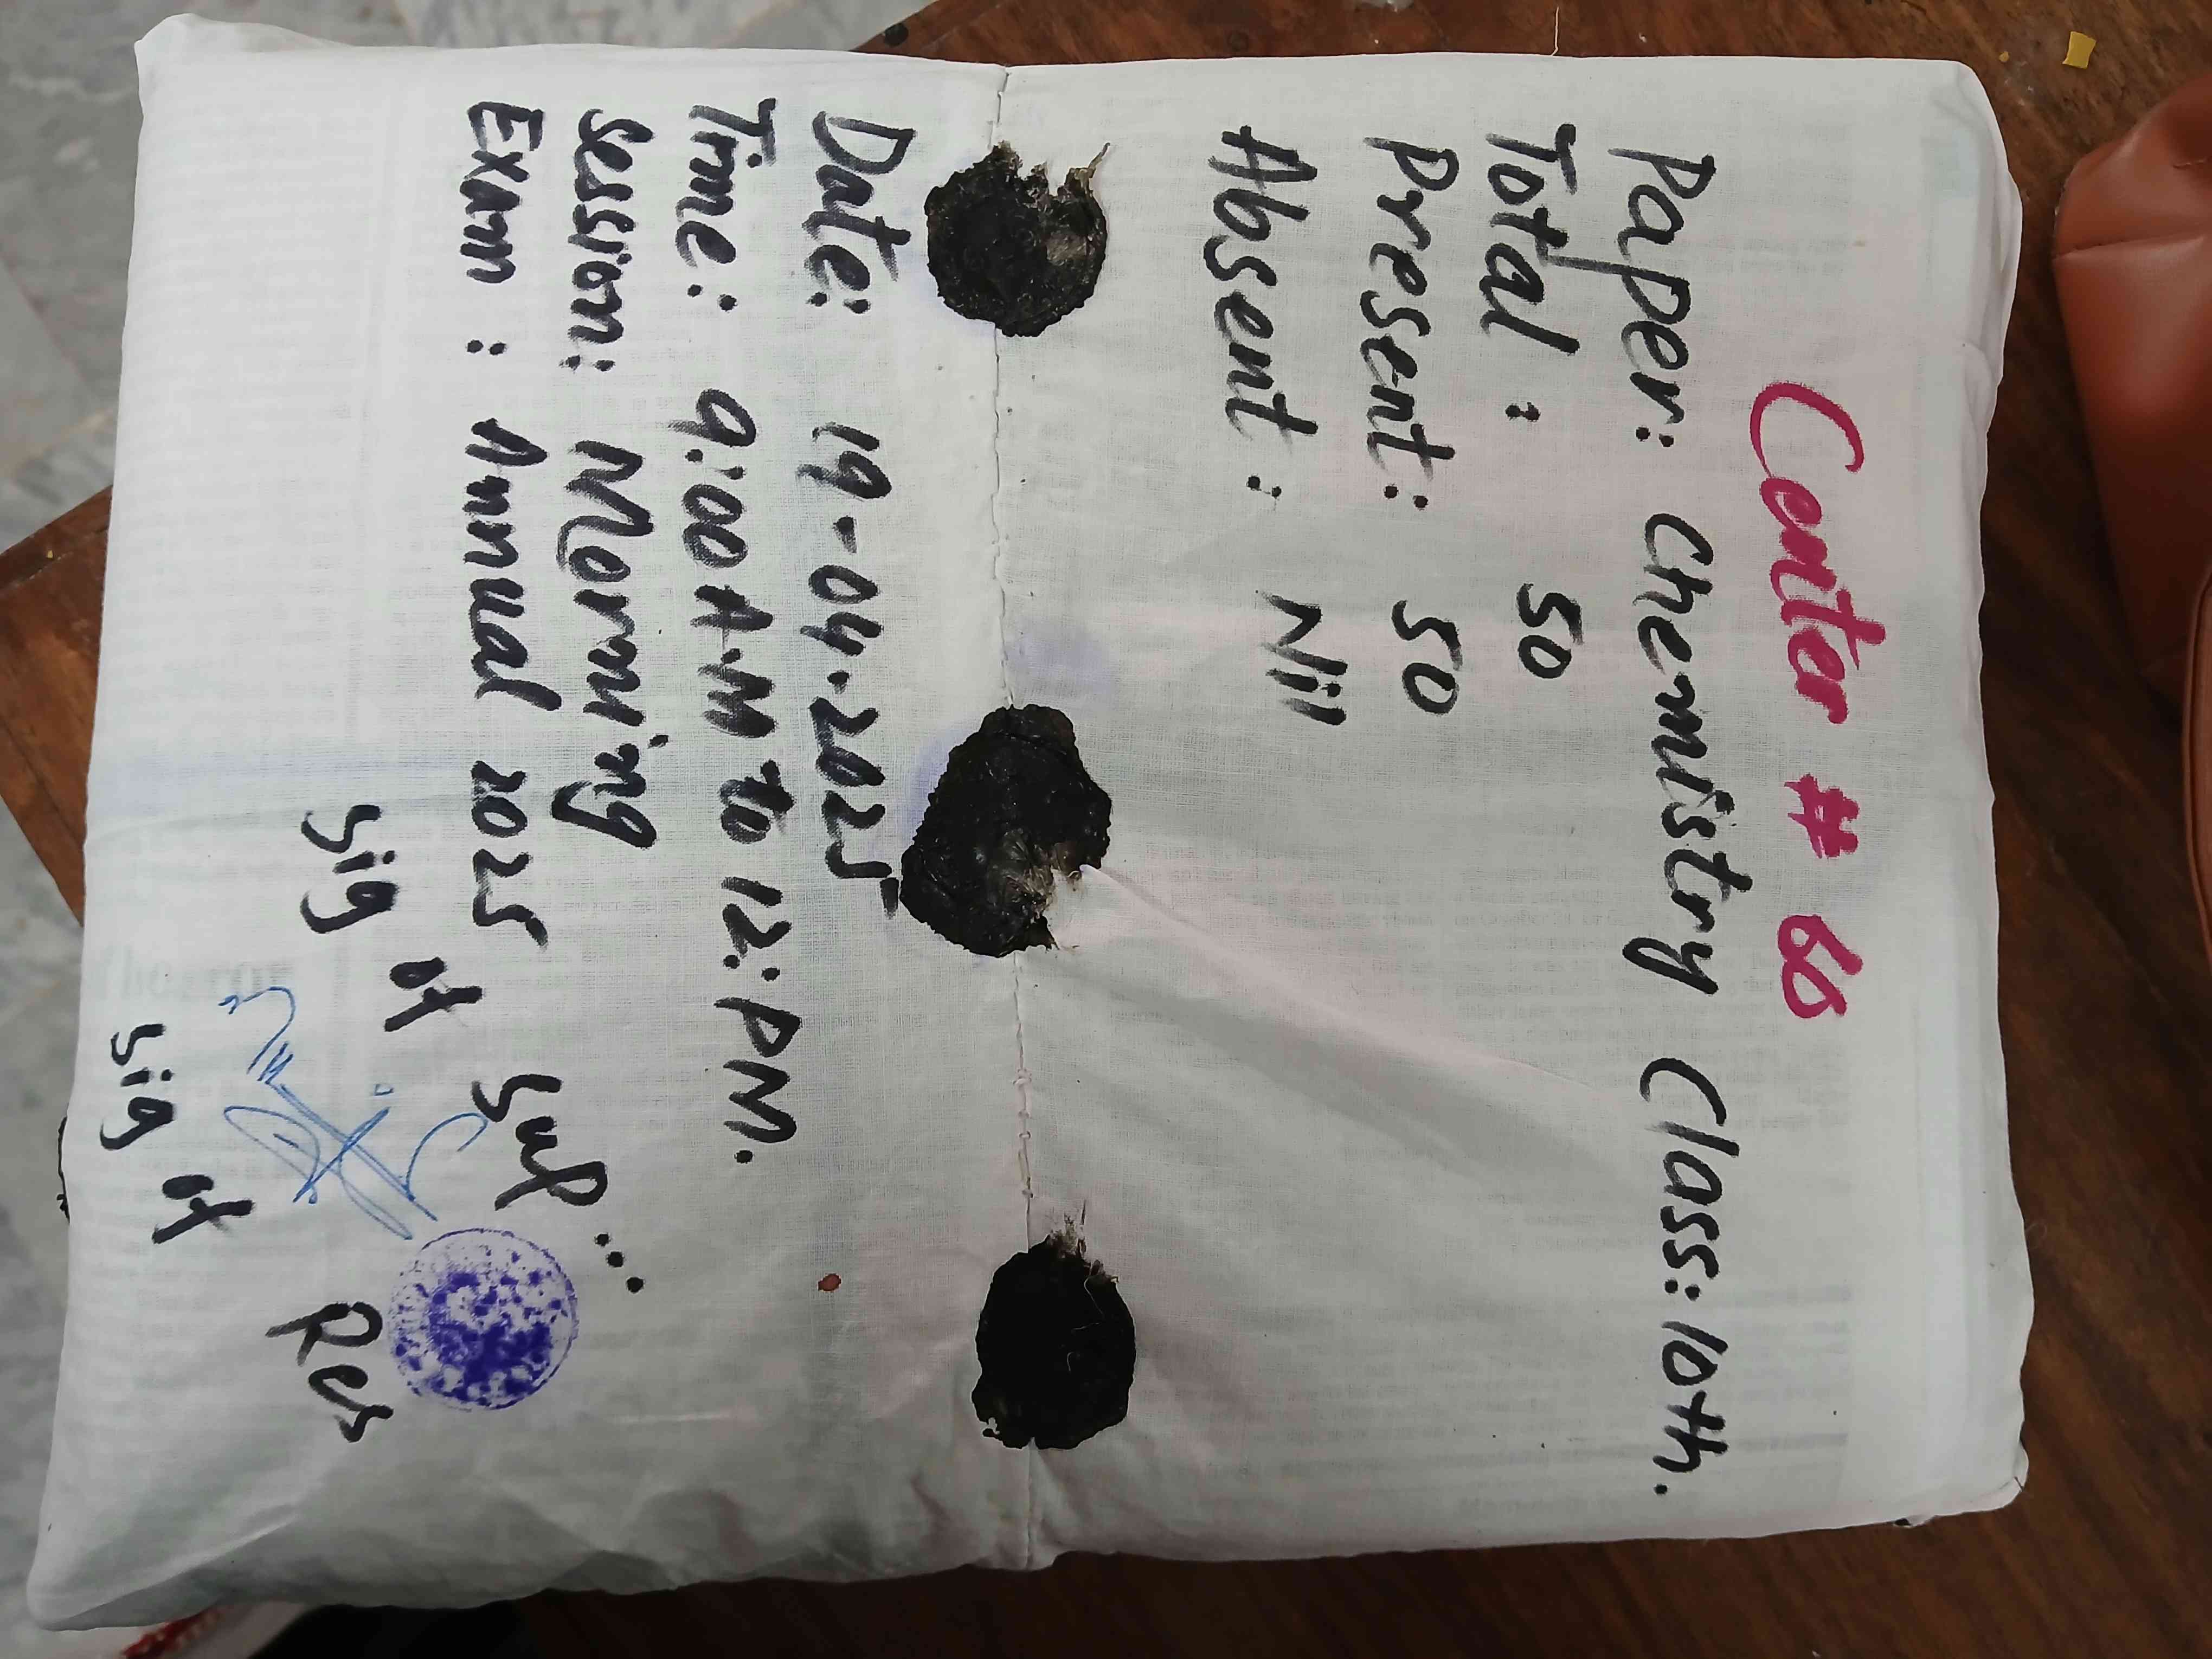 Center # 66
Paper: Chemistry Class: 10th.
Total : 50
Present: 50
Absent : Nil
Date: 19-04-2025
Time: 9:00 A.M to 12: PM.
Session: Morning
Exam : Annual 2025
Sig of Sup...
Sig of Res